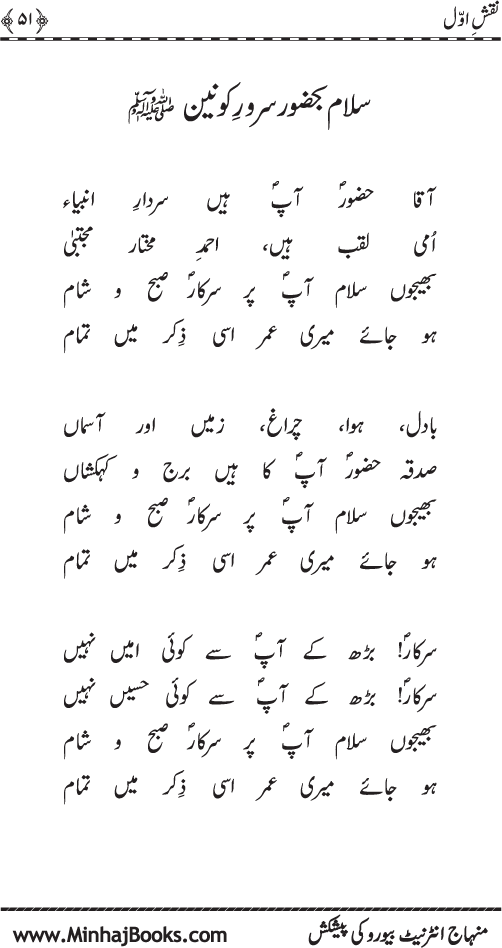 نقشِ اوّل ﴿۵۱﴾
سلام بحضور سرورِ کونین ﷺ
آقا حضورؐ آپؐ ہیں سردارِ انبیاء
اُمی لقب ہیں، احمدِ مختار مجتبیٰ
بھیجوں سلام آپؐ پر سرکارؐ صبح و شام
ہو جائے میری عمر اسی ذِکر میں تمام
بادل، ہوا، چراغ، زمیں اور آسماں
صدقہ حضورؐ آپؐ کا ہیں برج و کہکشاں
بھیجوں سلام آپؐ پر سرکارؐ صبح و شام
ہو جائے میری عمر اسی ذِکر میں تمام
سرکارؐ! بڑھ کے آپؐ سے کوئی امیں نہیں
سرکارؐ! بڑھ کے آپؐ سے کوئی حسیں نہیں
بھیجوں سلام آپؐ پر سرکارؐ صبح و شام
ہو جائے میری عمر اسی ذِکر میں تمام
منہاج انٹرنیٹ بیورو کی پیشکش www.MinhajBooks.com